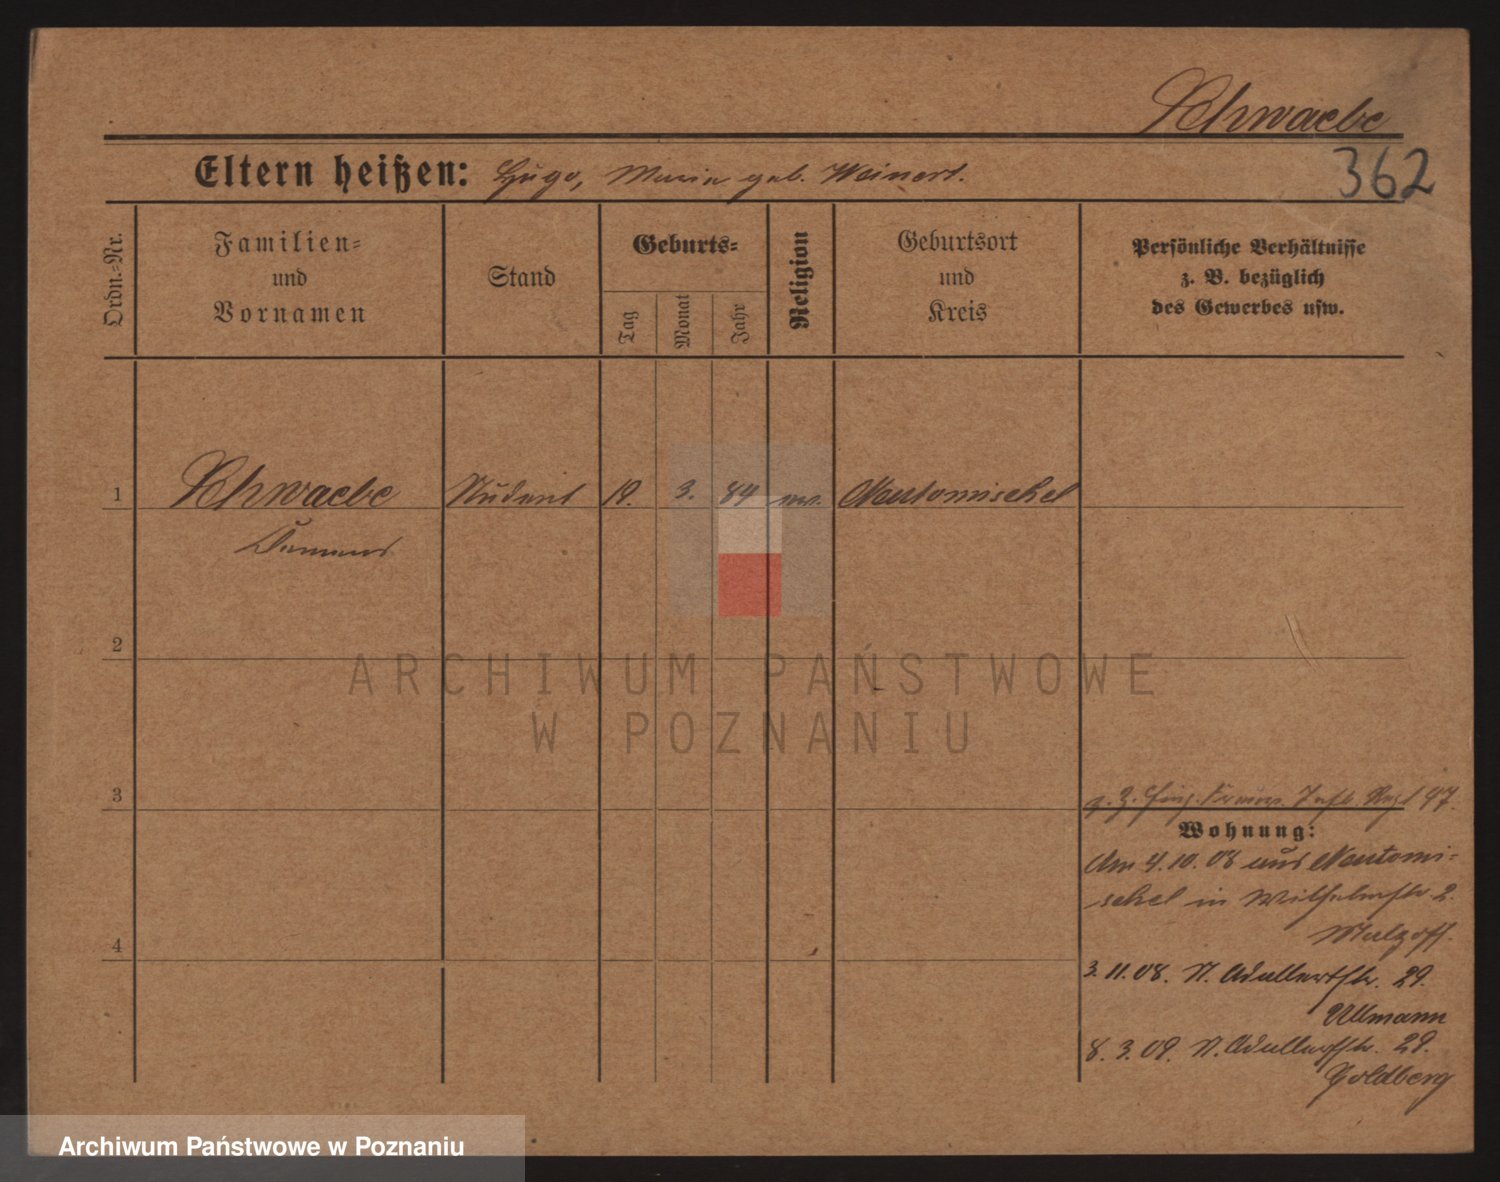 Schwaebe
Eltern heißen: Hugo, Maria geb. Weinert.
362
Ordn.-Nr.
Familien-
und
Vornamen
Stand
Geburts-
Tag
Monat
Jahr
Religion
Geburtsort
und
Kreis
Persönliche Verhältnisse
z. B. bezüglich
des Gewerbes usw.
1 Schwaebe Student 19. 3. 84 ev. Neutomischel
2
3
z. Z. Inft. Regt 47.
Wohnung:
Am 4.10.08 aus Neutomi-
schel in Wilhelmstr 2.
3.11.08. N. Adalbertstr. 29.
Ullmann
8.3.09. N. Adalbertstr. 29.
Goldberg
4
ARCHIWUM PAŃSTWOWE
W POZNANIU
Archiwum Państwowe w Poznaniu